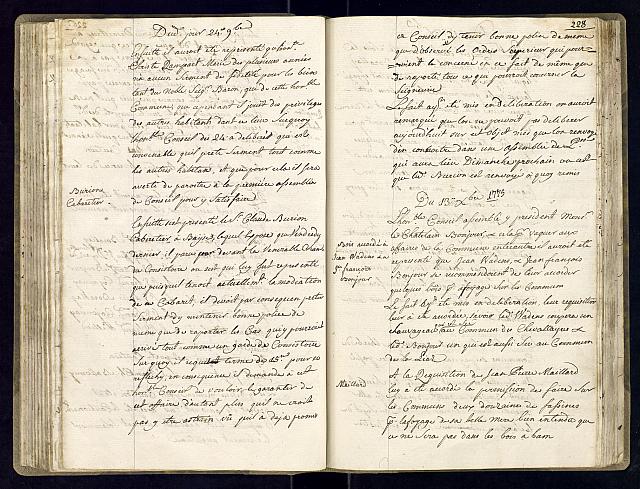 Dud. jour 24e 9bre
Ensuitte il auroit été representé qu'hon.
Rampart Merie des plusieurs années
n'a aucun Serment de fidelité pour les biens
tant du Noble Seigr. Baron, que de cette honble
Commune, qui cependant il jouit des privileges
des autres habitants dont ce leur Surquoy
l'honble Conseil des 24 a deliberé qui est
convenable qu'il prete Serment tout comme
les autres habitans, et que pour cela il sera
averti de paroitre a la premiere assemblée
de Conseil pour y Satisfaire
Burion
Cabaretier.
Ensuitte s'est presenté le Sr. Claude Burion
Cabaretier, à lequel expose que Vendredy
dernier il parut par devant la Venerable Cham
du Consistoire ou soit qui luy fut representé
que puisqu'il tenoit actuellemt. la moderation
de ce Cabaret, il devoit par consequent preter
Serment d'y maintenir bonne police de
meme que de raporter les Cas qui y pourroient
arriver tout comme un garde de Consistoire
Surquoy il requit terme de 15 pour se
reflechy, en consequence il demande à cet
honble Conseil de vouloir le garantir de
cet affaire d'autant plus qu'il ne croit
pas y etre astrein vu qu'il a deja promis
228
ce Conseil d'y tenir bonne police de meme
que d'observer les Ordres Superieur qui pour=
=roient le concerner en ce fait de même que
de raporter tous ce qui pourroit concerner la
Seigneurie
Le fait ayt. été mis en deliberation on auroit
remarqué que l'on ne pouvoit pas deliberer
aujourdhuit sur cet objet mais que l'on renvoy
d'en connoitre dans une assemblée de
qui aura lieu Dimanche prochain ou est
que led. Burion est renvoyé à quoy remis
Du 13e Xbre 1778
Bois accordé a
Jean Wadens & a
Jn. françois
Bonjour
L'honble Conseil assemblé, y president Monsr.
le Châtelain Bonjour, & cela po. Vaquer aux
affaire de la Commune entre autre il auroit été
representé que Jean Wadens & Jean françois
Bonjour se recommanderent de leur accorder
quelques bois po. affoyage sur les Commun
Le fait ayt. été mis en deliberation, leur requisition
leur a été accordée, savoir led. Wadens coupera un
Sauvageau sur les Commun des Chevallayres &
led. Bonjour un qui est aussi sur au Commun
de la Lex
Maillard
A la Requisition de Jean Pierre Maillard
luy a été accordé la permission de faire sur
les Communs deux douzaines de fassines
po. l'affoyage de sa belle mere bien entendu que
ce ne sera pas dans les bois à bam